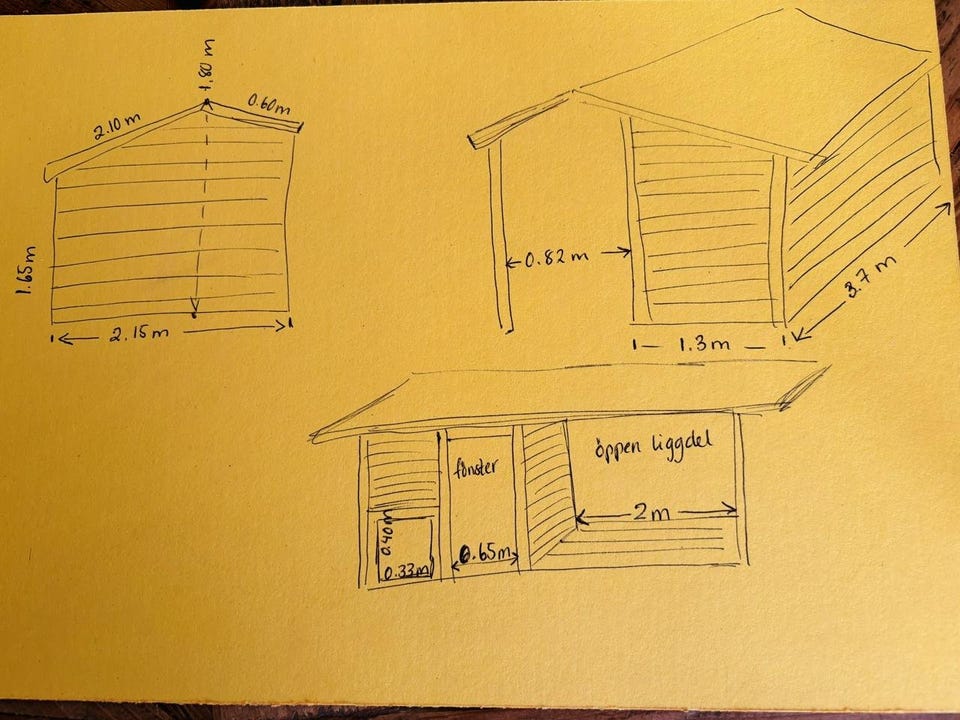 1.80 m
2.10 m
0.60m
1.65m
2.15m
0.82 m
3.7 m
1.3m
fönster
öppen liggdel
2m
0.40m
0.65m
0.33m